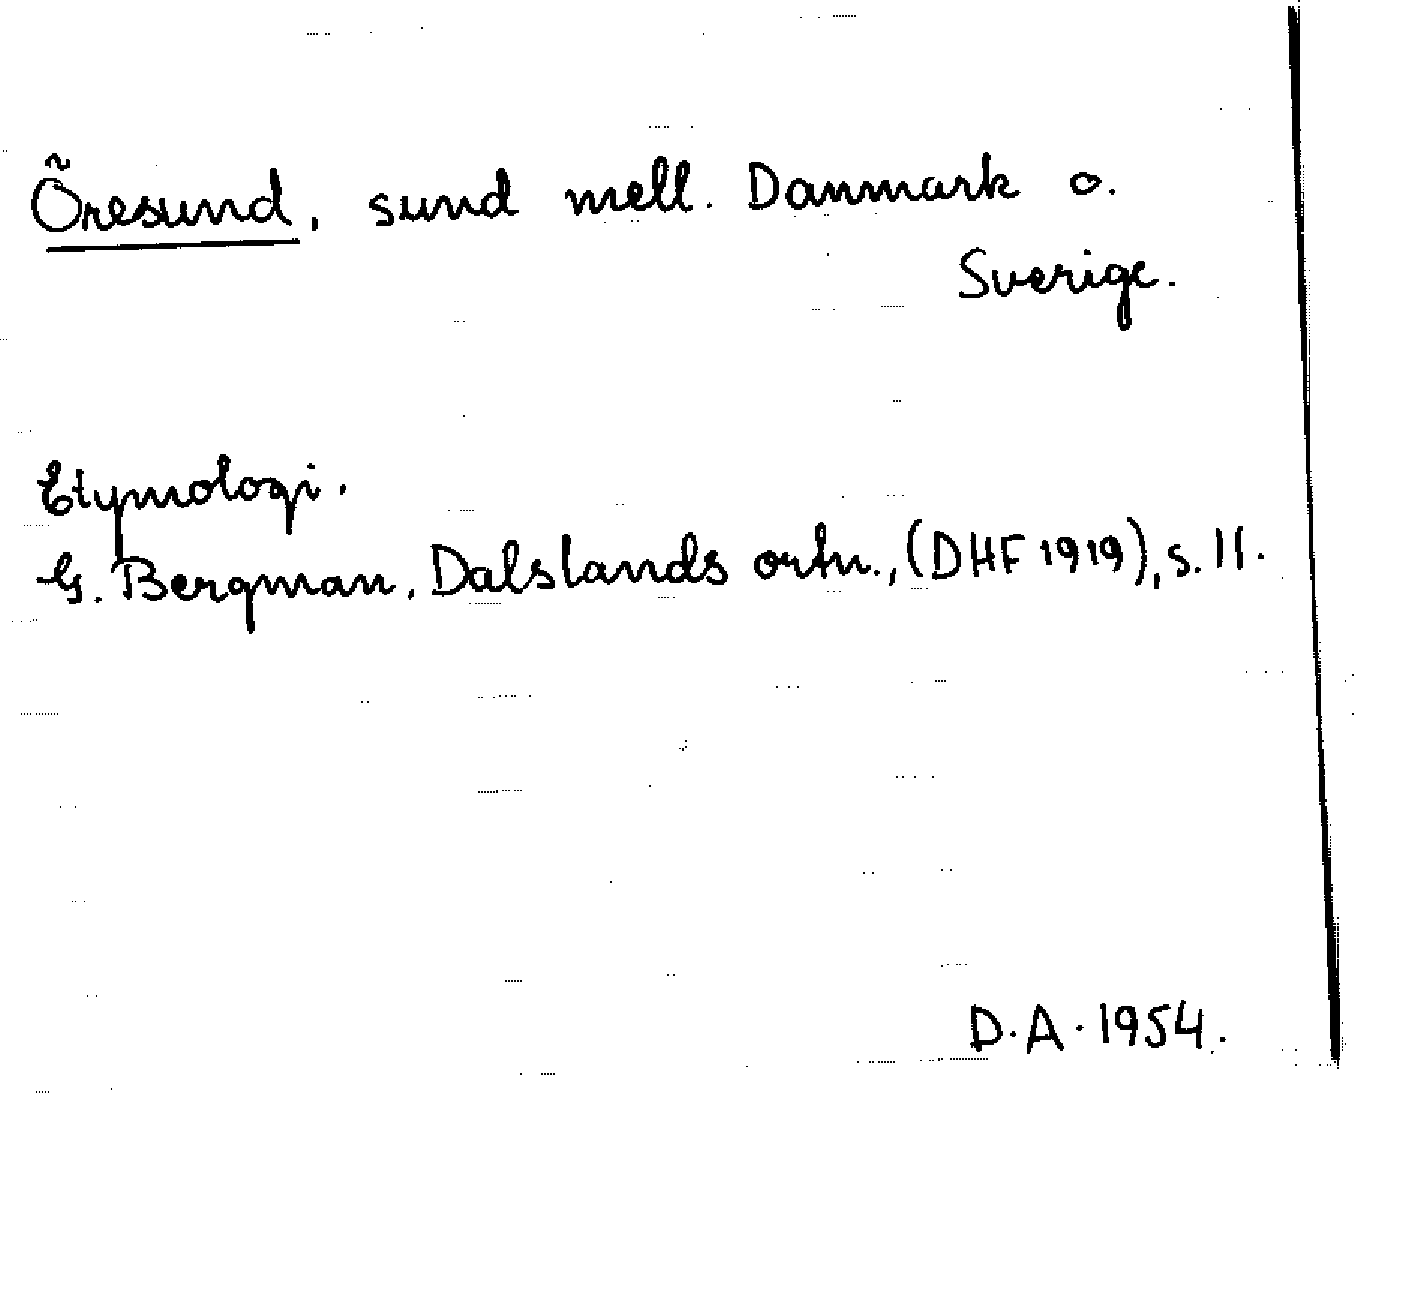 Öresund, sund mell. Danmark o.
Sverige.
Etymologi.
G. Bergman, Dalslands ortn., (DHF 1919), s. 11.
D.A. 1954.